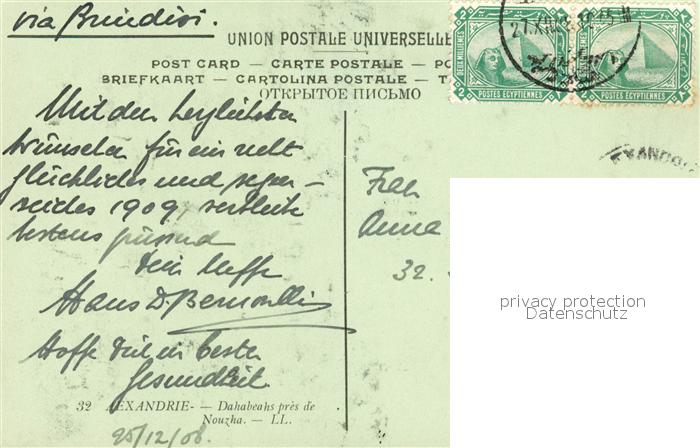 via Brindisi.
UNION POSTALE UNIVERSELLE
POST CARD — CARTE POSTALE — PO
BRIEFKAART — CARTOLINA POSTALE — T
ОТКРЫТОЕ ПИСЬМО
2 DEUX MILLIEMES 2 POSTES EGYPTIENNES
2 2 POSTES EGYPTIENNES
27.XII.
EXANDR
Mit den herzlichsten
Wünschen für ein recht
glückliches und segen-
reiches 1909, verbleibe
bestens grüssend
Dein Neffe
Hans D. Bernoulli
Hoffe Dich in bester
Gesundheit
Frau
Anna
32.
privacy protection
Datenschutz
32 ALEXANDRIE- — Dahabeahs près de
Nouzha. — LL.
25/12/08.